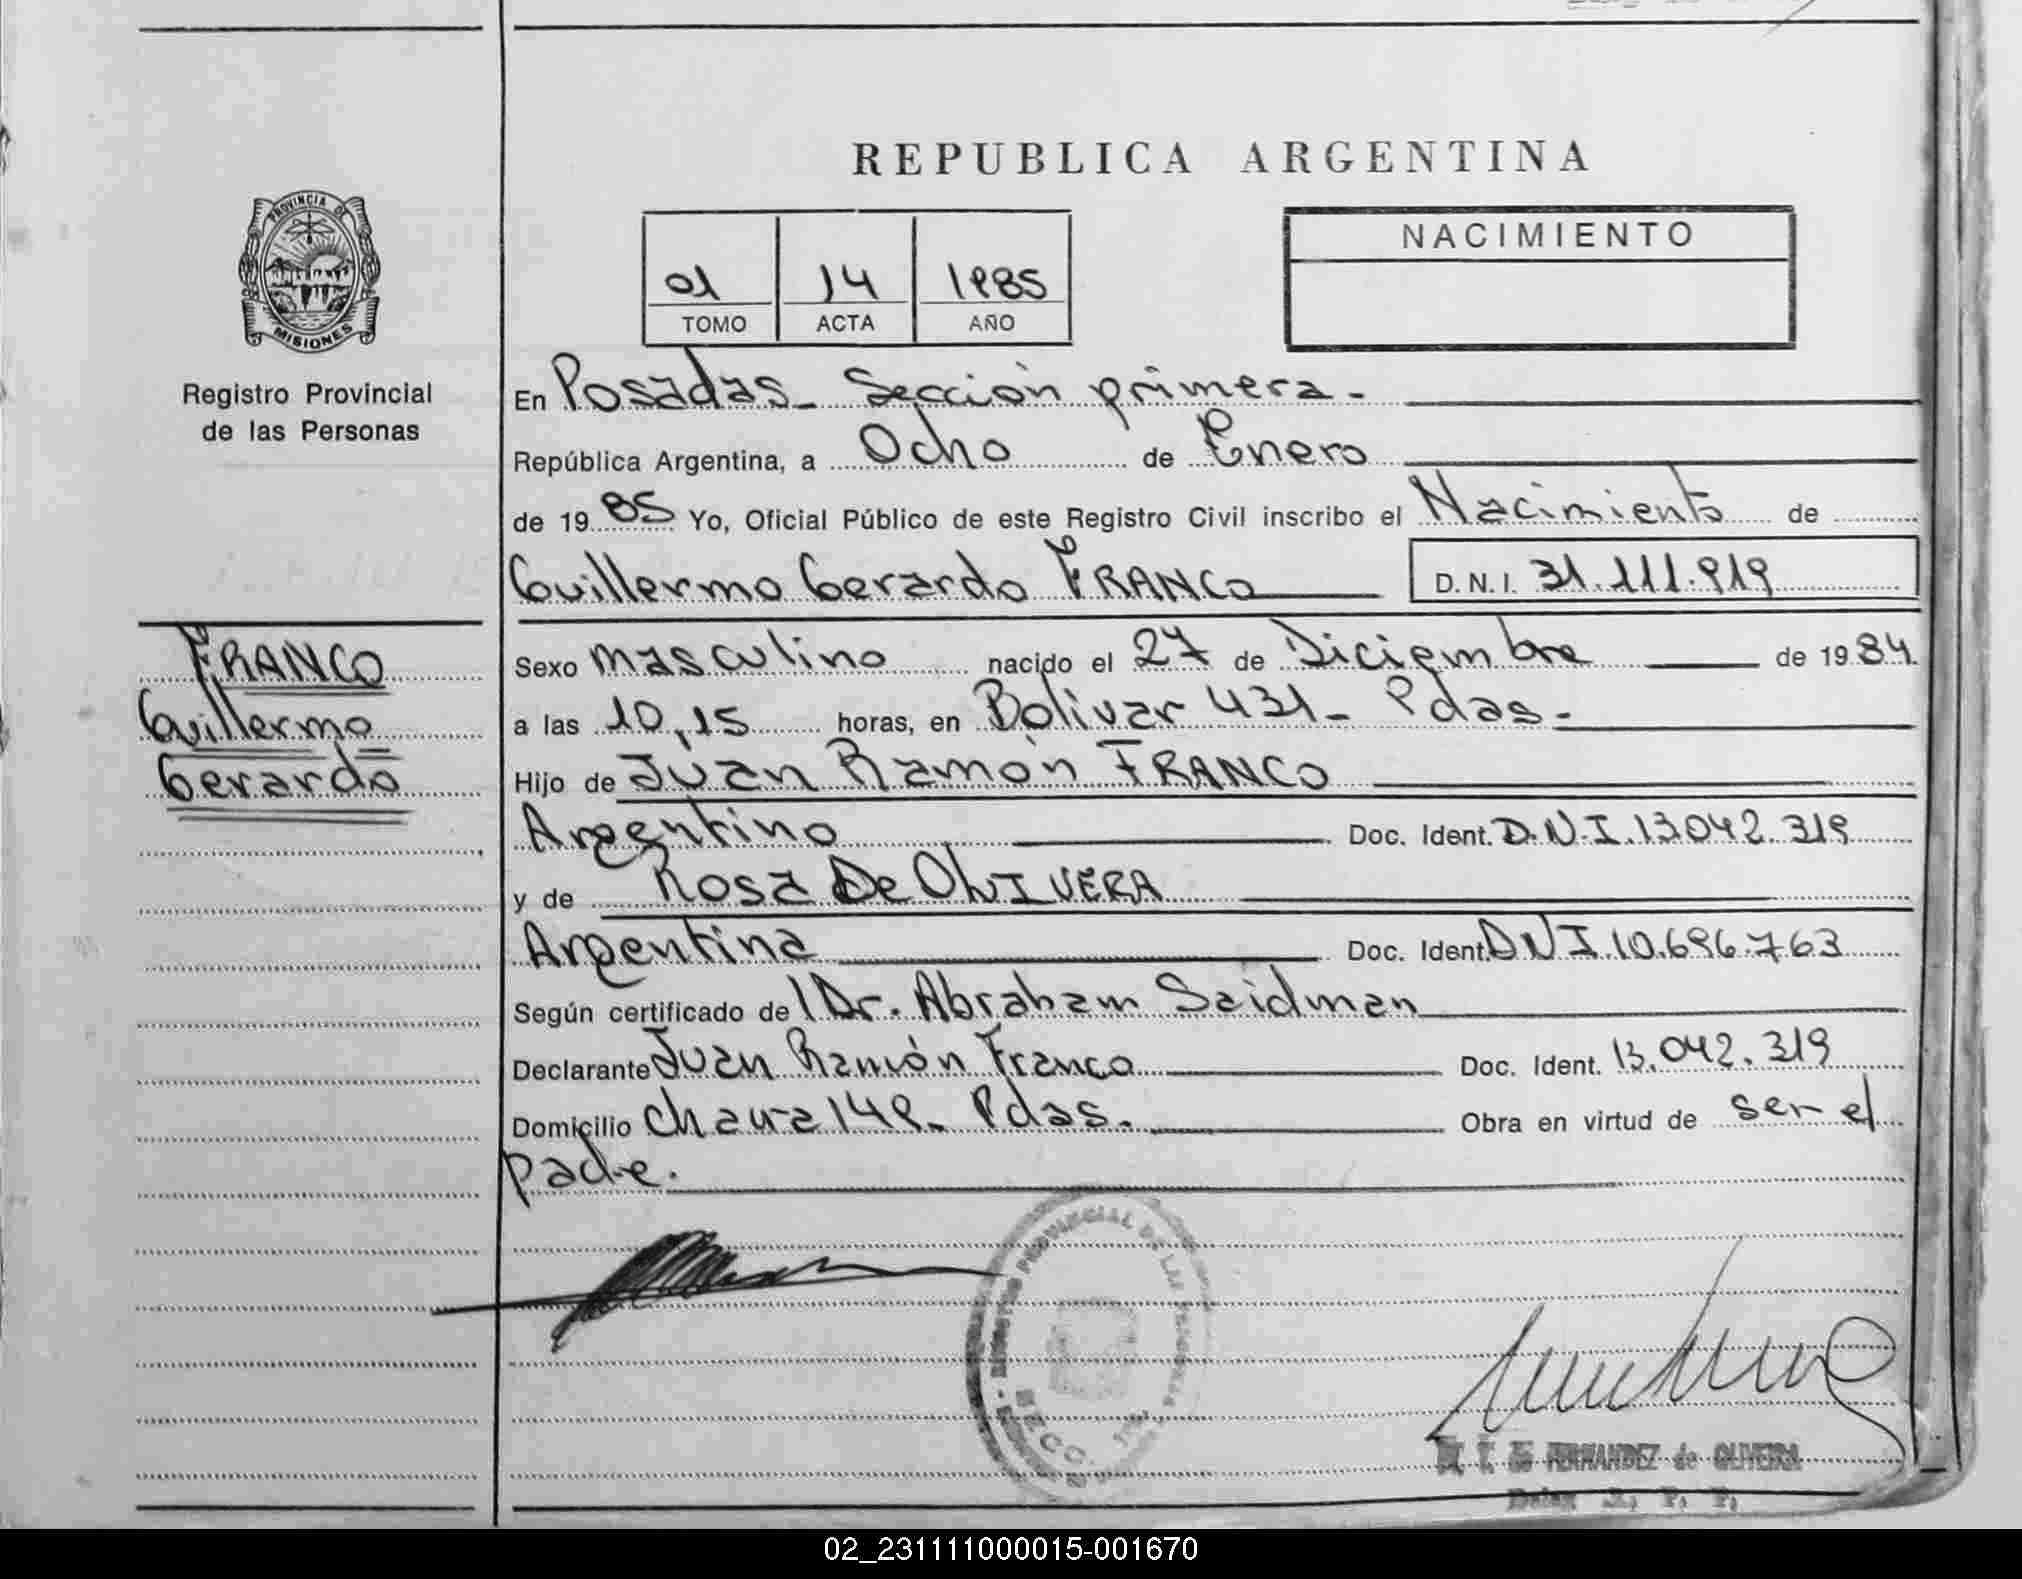 REPUBLICA ARGENTINA
PROVINCIA DE
MISIONES
Registro Provincial
de las Personas
01 14 1985
TOMO ACTA AÑO
NACIMIENTO
En Posadas_ Sección primera.
República Argentina, a Ocho de Enero
de 1985 Yo, Oficial Público de este Registro Civil inscribo el Nacimiento de
Guillermo Gerardo FRANCO D.N.I. 31.111.919
FRANCO
Guillermo
Gerardo
Sexo masculino nacido el 27 de Diciembre de 1984.
a las 10,15 horas, en Bolivar 431_ Pdas.
Hijo de Juan Ramón FRANCO
Argentino Doc. Ident. D.N.I.13.042.319
y de Rosa De OLIVERA
Argentina Doc. Ident. DNI.10.696.763
Según certificado del Dr. Abraham Saidman
Declarante Juan Ramón Franco Doc. Ident. 13.042.319
Domicilio 149_ Pdas. Obra en virtud de ser el
padre.
REGISTRO PROVINCIAL DE LAS PERSONAS
SECC.
FERNANDEZ de OLIVEIRA
02_231111000015-001670